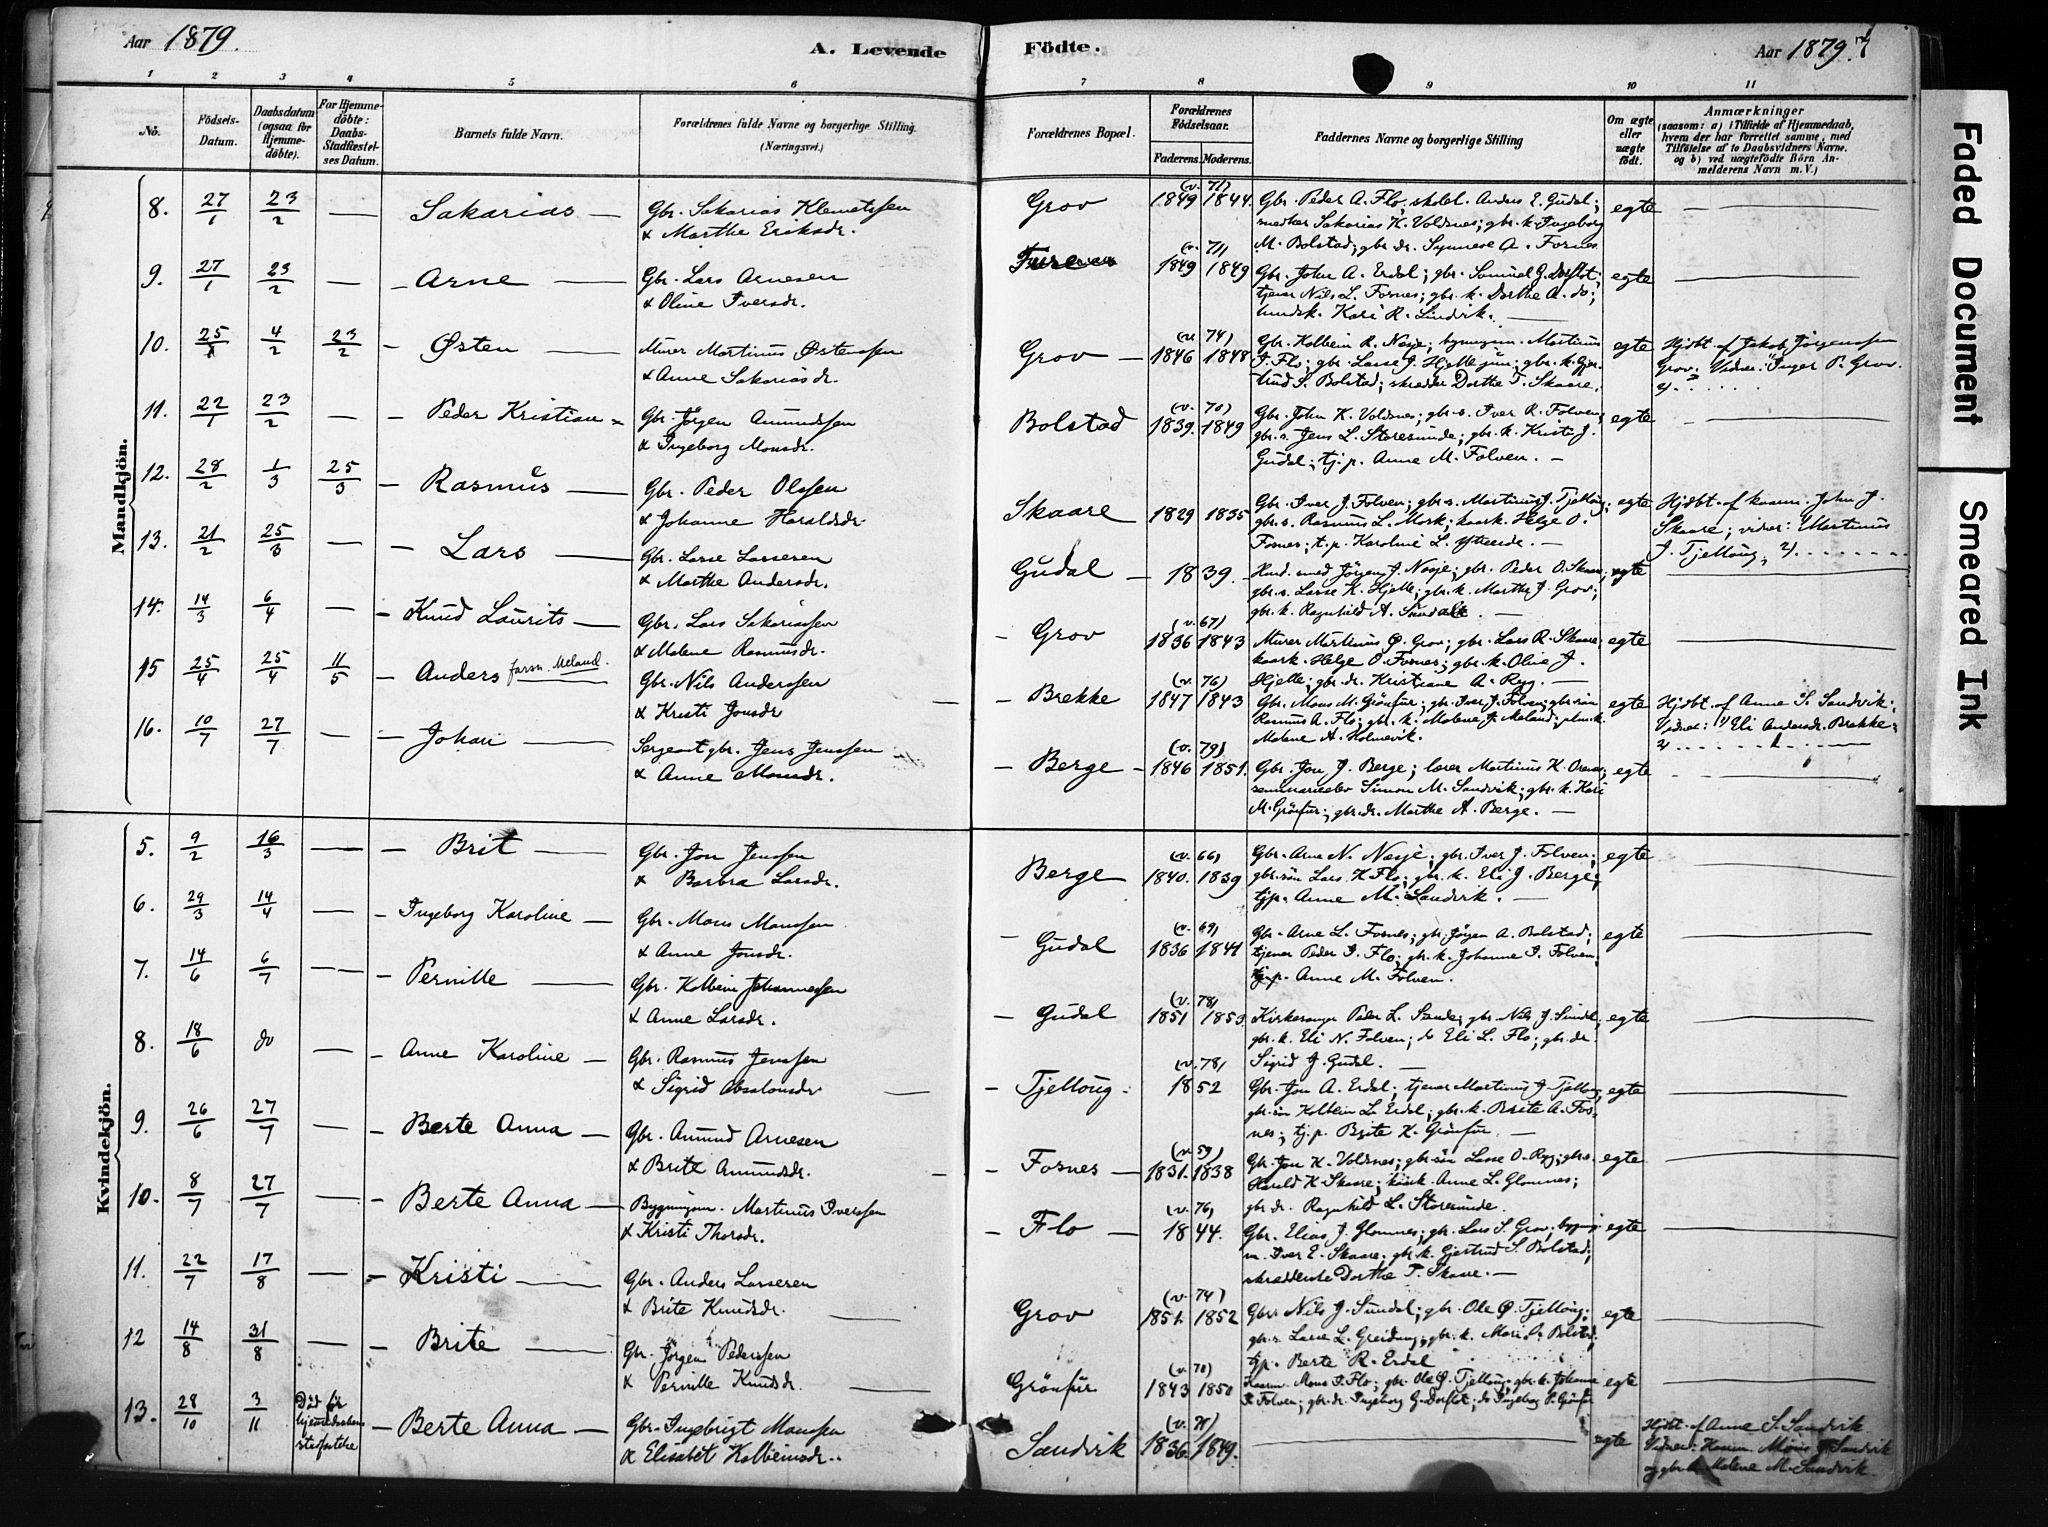 Aar 1879.
A. Levende
Födte.
Aar 1879. 7
1 2 3 4 5 6 7 8 9 10 11
No.
Födsels-Datum.
Daabsdatum (ogsaa for Hjemme-döbte).
For Hjemme-döbte: Daabs-Stadfæstel-ses Datum.
Barnets fulde Navn.
Forældrenes fulde Navne og borgerlige Stilling.
(Næringsvei.)
Forældrenes Bopæl.
Forældrenes Födselsaar.
Faderens. Moderens.
Faddernes Navne og borgerlige Stilling
Om ægte eller uægte födt.
Anmærkninger
(saasom: a) i Tilfælde af Hjemmedaab, hvem der har forrettet samme, med Tilföielse af to Daabsvidners Navne. og b) ved uægtefödte Börn An-melderens Navn m. V.)
Mandkjön.
8. 27/1 23/2 — Sakarias — Gbr. Sakarias Klemetssen
& Marthe Eriksdr.
Grov (v. 71) 1849 1844. Gbr. Peder A. Flo, skolel. Anders E. Gudal; egte
Sakarias K. Voldsnes; gbr. k. Ingeborg
M. Bolstad; gbr. dr. Synneve A. Fornes
9. 27/1 23/2 — Arne — Gbr. Lars Arnesen
& Oline Iversdr.
(v. 71) 1849 1849 Gbr. John A. Erdal; gbr. Samuel G. Dorflot; egte
tjener Nils L. Fornes; gbr. k. Dorthe A. do;
Kari R. Lindvik.
10. 25/1 4/2 23/2 — Østen — Murer Martinus Østenssen
& Anne Sakariasdr.
Grov (v. 74) 1846 1848 Gbr. Kolbein R. Nesje; bygningsm. Martinus egte
I. Flo; gbr. Lasse J. Hjelle jun; gbr. k. Gjer-
trud S. Bolstad; skrædder Dorthe T. Skaare.
Hjdbt. af Jakob Jørgenssen
Grov. Vidner: Inger P. Grov.
11. 22/1 23/2 — Peder Kristian — Gbr. Jørgen Amundssen
& Ingeborg Monsdr.
Bolstad (v. 70) 1839. 1849 Gbr. John K. Voldsnes; gbr. s. Iver R. Folven; egte
gbr. s. Jens L. Storesunde; gbr. k. Kristi J.
Gudal; tj. p. Anne M. Folven. —
12. 28/2 1/3 25/3 — Rasmus — Gbr. Peder Olssen
& Johanne Haraldsdr.
Skaare 1829 1835 Gbr. Iver J. Folven; gbr. s. Martinus J. Tjellaug; egte
gbr. s. Rasmus L. Mork; kaark. Helge O.
Fosnes; t. p. Karoline L. Ytreeide. —
Hjdbt. af kaarm. John J.
Skaare; vidner: Martinus
J. Tjellaug; 2)
13. 21/2 25/3 — Lars — Gbr. Lasse Lassesen
& Marthe Andersdr.
Gudal — 1839. Jørgen J. Nesje; gbr. Peder O. Skaare; egte
gbr. s. Lasse K. Hjelle; gbr. k. Marthe J. Grov;
gbr. k. Ragnhild A. Sundal. —
14. 14/3 6/4 — Knud Laurits — Gbr. Lars Sakariassen
& Malene Rasmusdr.
Grov (v. 67) 1836 1843 Murer Martinus Ø. Grov; gbr. Lars R. Skaare; egte
kaark. Helge O. Fornes; gbr. k. Oline J.
Hjelle; gbr. dr. Kristiane A. Ryg. —
15 25/4 25/4 11/5 — Anders farsn. Meland. Gbr. Nils Anderssen
& Kristi Jonsdr
Brekke (v. 76) 1847 1843 Gbr. Mons M. Grönfur; gbr. Iver J. Folven; gbr. sön egte
Rasmus A. Flo; gbr. k. Malene J. Meland;
Malene A. Holmevik.
Hjdbt. af Anne S. Sandvik.
Vidner: 1) Eli Andersdr. Brekke;
16. 10/7 27/7 — Johan — Sergeant gbr. Jens Jenssen
& Anne Monsdr.
Berge — (v. 79) 1846 1851. Gbr. Jon J. Berge; lærer Martinus K. egte
seminarieelev Simon M. Sandvik; gbr. k. Kari
M. Grönfur; gbr. dr. Marthe A. Berge. —
Kvindekjön.
5. 9/2 16/3 — Brit — Gbr. Jon Jenssen
& Barbra Larsdr.
Berge (v. 66) 1840. 1839 Gbr. Arne N. Nesje; gbr. Iver J. Folven; egte
gbr. sön Lars K. Flo; gbr. k. Eli J. Berge;
tjp. Anne M. Sandvik. —
6. 29/3 14/4 — Ingeborg Karoline — Gbr. Mons Monssen
& Anne Jonsdr.
Gudal (v. 69) 1836 1841 Gbr. Arne L. Fosnes; gbr. Jørgen A. Bolstad; egte
tjener Peder I. Flo; gbr. k. Johanne I. Folven;
tj. p. Anne M. Folven.
7. 14/6 6/7 — Pernille — Gbr. Kolbein Johannessen
& Anne Larsdr.
Gudal (v. 78) 1851 1853 Kirkesanger Peder L. Sande; gbr. Nils J. Sundal; egte
gbr. k. Eli N. Folven; do Eli L. Flo; gbr. dr.
Sigrid J. Gudal. —
8. 18/6 do — Anne Karoline — Gbr. Rasmus Jenssen
& Sigrid Absalonsdr
Tjellaug. (v. 78) 1852 Gbr. Jon A. Erdal; tjener Martinus J. Tjellaug; egte
gbr. sön Kolbein L. Erdal; gbr. k. Brite A. Fos-
nes; tj. p. Brite K. Grönfur. —
9. 26/6 27/7 — Berte Anna — Gbr. Amund Arnesen
& Brite Amundsdr.
Fosnes — (v. 59) 1831. 1838 Gbr. Jon K. Voldsnes; gbr. sön Lasse O. Ryg; gbr. s. egte
Harald K. Skaare; kaark. Anne L. Glomnes;
gbr. dr. Ragnhild L. Storesunde.
10. 8/7 27/7 — Berte Anna — Bygningsm. Martinus Iverssen
& Kristi Thorsdr.
Flo — (v. 76) 1844. Gbr. Elias J. Glomnes; gbr. Lars S. Grov; bygnings- egte
m. Iver E. Skaare. gbr. k. Gjertrud S. Bolstad;
Dorthe T. Skaare. —
11. 22/7 17/8 — Kristi — Gbr. Anders Lassesen
& Brite Knudsdr.
Grov (v. 74) 1851. 1852 Gbr. Nils J. Sundal; gbr. Ole Ø. Tjellaug; egte
gbr. s. Lasse L. Greidung; gbr. k. Mari Bolstad;
tjp. Berte R. Erdal
12 14/8 31/8 — Brite — Gbr. Jörgen Pederssen
& Pernille Knudsdr.
Grönfur (v. 70) 1843 1850 Kaarm. Mons I. Flo; gbr. Ole Ø. Tjellaug; gbr. k. Johanne egte
I. Folven; gbr. dr. Ingeborg G. Dorflot; do Ingeborg P. Grönfur
13. 28/10 3/11 Död för hjemmedaabens stadfæstelse — Berte Anna — Gbr. Ingebrigt Monssen
& Elisabet Kolbeinsdr.
Sandvik (v. 71) 1836. 1849. — egte
Hjdbt. af Anne S. Sandvik
Vidner: Kaarm. Mons Sandvik
og gbr. k. Malene M. Sandvik.
Faded Document
Smeared Ink